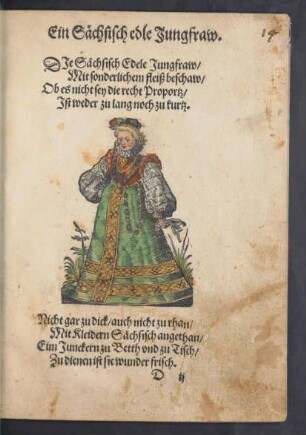 Ein Sächsisch edle Jungfraw.
14
DJe Sächsisch Edele Jungfraw/
Mit sonderlichem fleiß beschaw/
Ob es nicht sey die recht Proportz/
Jst weder zu lang noch zu kurtz.
Nicht gar zu dick/ auch nicht zu rhan/
Mit Kleidern Sächsisch angethan/
Eim Junckern zu Betth vnd zu Tisch/
Zu dienen ist sie wunder frisch.
D ij